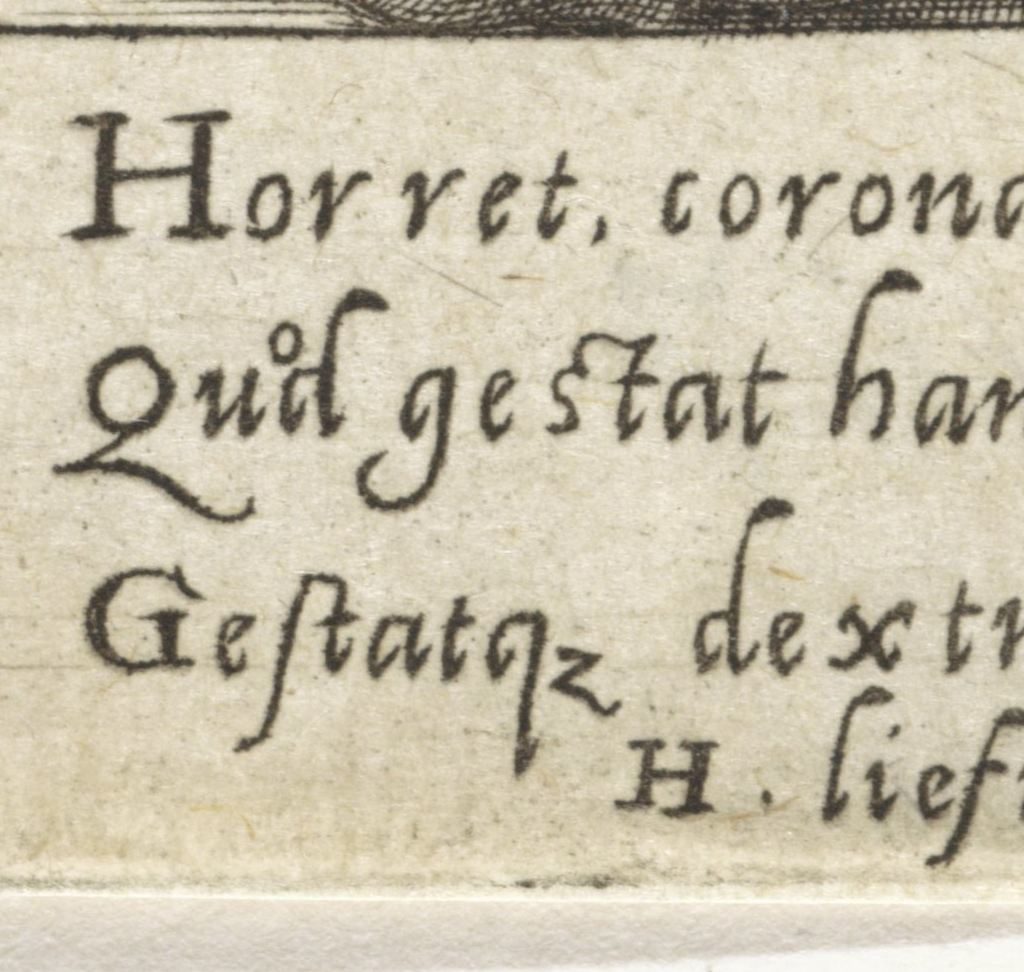 Horret, corona
Quod gestat har
Gestatqz dextr
H. lief